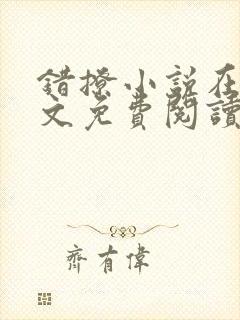 错撩小说在
文免費閱讀
齊有偉